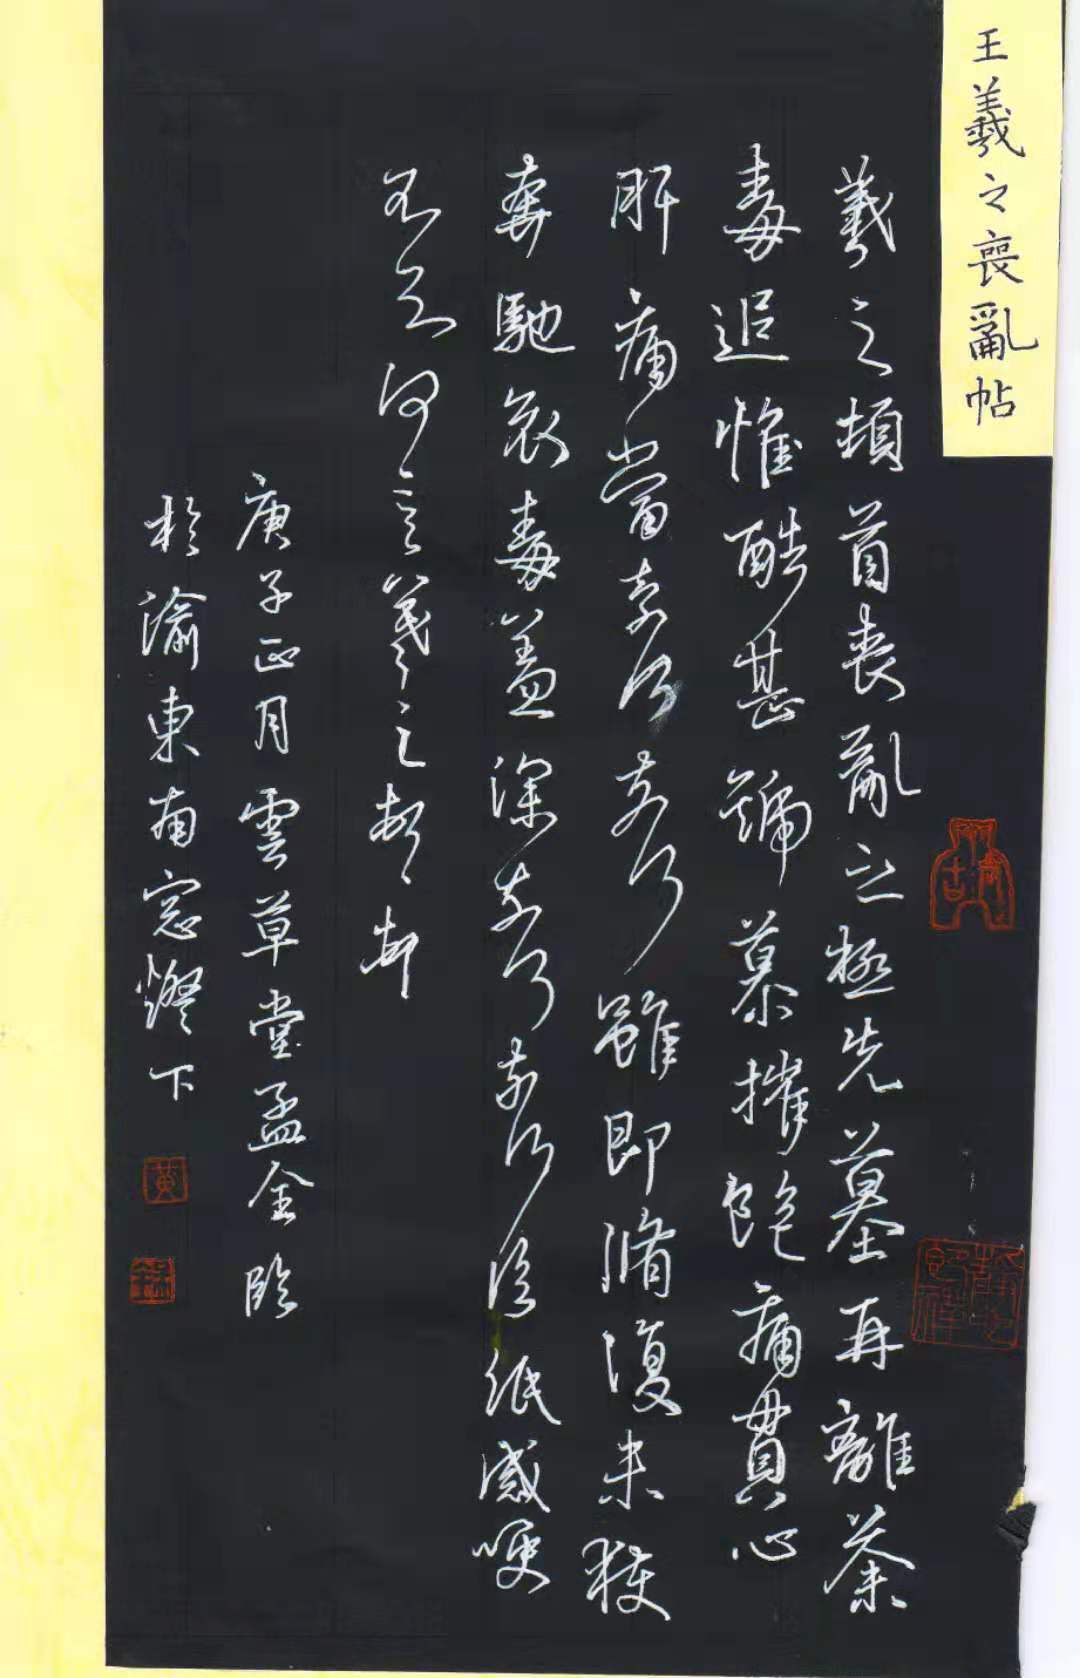 王羲之喪亂帖
羲之頓首喪亂之極先墓再離荼
毒追惟酷甚號慕摧絕痛貫心
肝痛當奈何奈何雖即脩復未獲
奔馳哀毒益深奈何奈何臨紙感哽
不知何言羲之頓首頓首
庚子正月雲草堂孟金臨
於渝東南窓燈下
黄